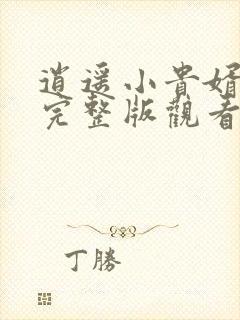 逍遥小貴婿
完整版觀看
丁勝